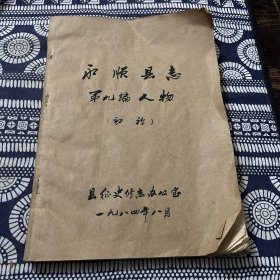 永顺县志
第九编 人物
（初稿）
县征史修志办公室
一九八四年八月